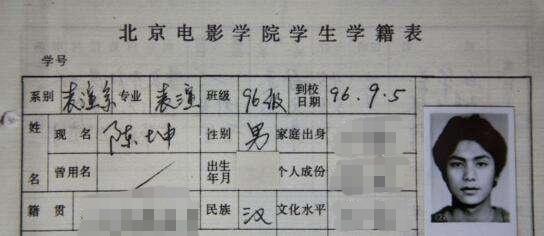 北京电影学院学生学籍表
学号
系别 表演系 专业 表演 班级 96级 到校日期 96.9.5
姓名 现名 陈坤 性别 男 家庭出身
曾用名 出生年月 个人成份
籍贯 民族 汉 文化水平